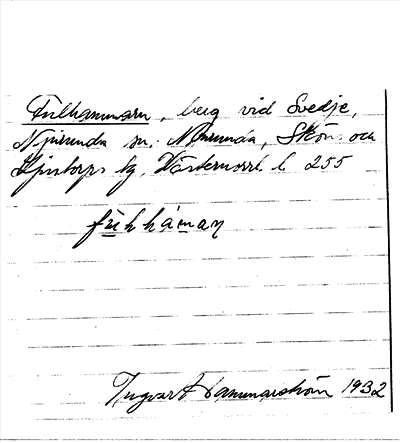 Fulhammarn, berg vid Svedje,
Njurunda sn. Njurunda, Sköns och
Ljustorps tg, Västernorrl. l. 255
Ingvar Hammarström 1932